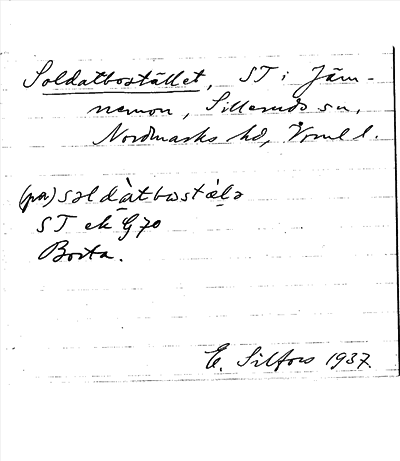 Soldatbostället, ST i Järn-
nemon, Silleruds sn,
Nordmarks hd, Värml l.
(på) soldàtbostäl̀ə
ST ek G 70
Borta.
E. Silfors 1937.